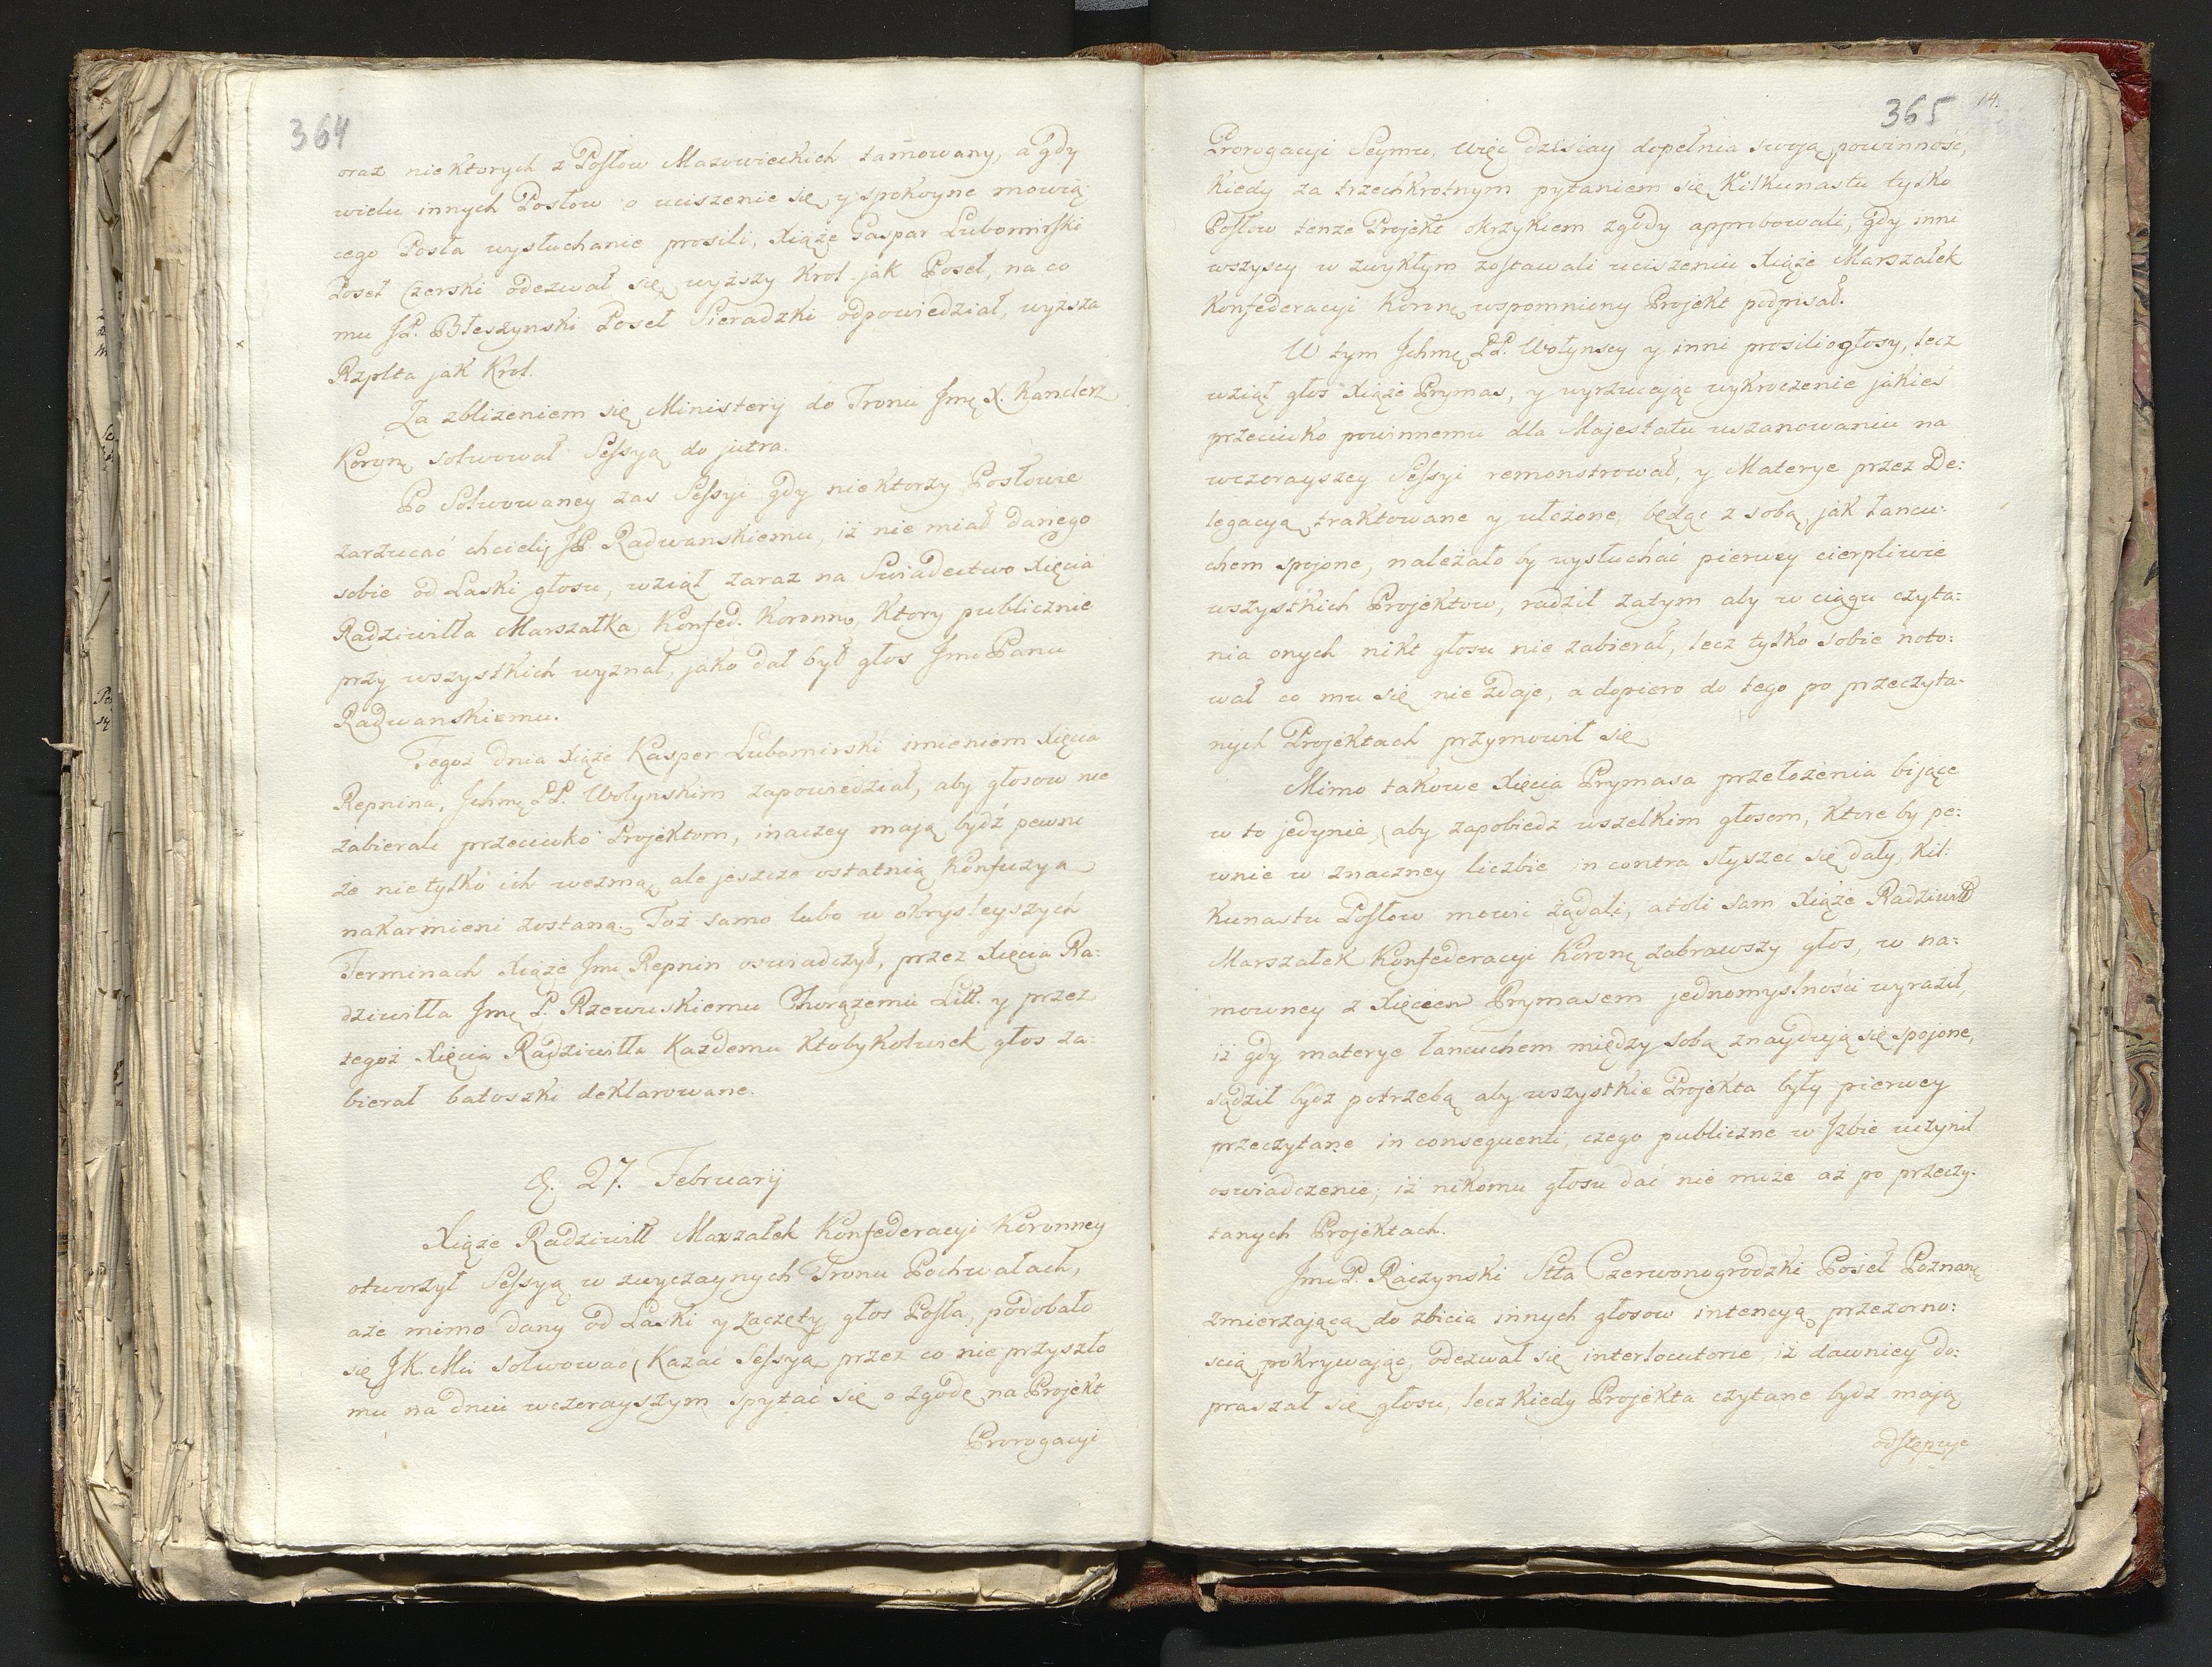 364
oraz niektorych z Posłow Mazowieckich tamowany, a gdy
wielu innych Posłow o uciszenie się, y spokoyne mowią-
cego Posła wysłuchanie prosili, Xiąże Gaspar Lubomirski
Poseł Czerski odezwał się, wyższy Krol jak Poseł, na co
mu JP. Błeszynski Poseł Sieradzki odpowiedział, wyższa
Rzplta jak Krol.
Za zbliżeniem się Ministerij do Tronu Jmć X. Kanclerz
Koronę solwował Sessyą do jutra.
Po Solwowaney zas Sessyi gdy niektorzy Posłowie
zarzucać chcieli JP. Radwanskiemu, iż nie miał danego
sobie od Laski głosu, wziął zaraz na Swiadectwo Xięcia
Radziwiłła Marszałka Konfed. Koronno, Ktory publicznie
przy wszystkich wyznał, jako dał był głos Jmć Panu
Radwanskiemu.
Tegoż dnia Xiąże Kasper Lubomirski imieniem Xięcia
Repnina, Jchmę PP. Wołynskim zapowiedział, aby głosow nie
zabierali przeciwko Projektom, inaczey mają bydź pewni
że nie tylko ich wezmą, ale jeszcze ostatnią Konfuzyą
nakarmieni zostaną. Toż samo lubo w okryslejszych
Terminach Xiąże Jmć Repnin oswiadczył, przez Xięcia Ra:
dziwiłła Jmę P. Rzewuskiemu Chorążemu Litt. y przez
tegoż Xięcia Radziwiłła Każdemu Ktobykolwiek głos za:
bierał batoszki deklarowane.
27. Februarij
Xiąże Radziwiłł Marszałek Konfederacyi Koronney
otworzył Sessyą w zwyczaynych Tronu Pochwałach,
aże mimo dany od Laski y zaczęty głos Posła, podobało
się JK. Mci solwować Kazać Sessyą przez co nie przyszło
mu na dniu wczorayszym spytać się o zgodę na Projekt
Prorogacyi
365 14.
Prorogacyi Seymu, więc dzisiay dopełnia swoją powinność,
kiedy za trzechkrotnym pytaniem się Kilkunastu tylko
Posłow tenże Projekt okrzykiem zgody approbowali, gdy inni
wszyscy w zwykłym zostawali uciszeniu Xiąże Marszałek
Konfederacyi Koronę wspomniony Projekt podpisał.
W tym Jchmę PP. Wołynscy y inni prosili o głosy, lecz
wziął głos Xiąże Prymas, y wyrzucając wykroczenie jakieś
przeciwko powinnemu dla Majestatu uszanowaniu na
wczorayszey Sessyi remonstrował, y Materye przez De:
legacyą traktowane y ułożone, będąc z sobą jak łancu:
chem spojone, należało by wysłuchać pierwey cierpliwie
wszystkich Projektow, radził zatym aby w ciągu czyta:
nia onych nikt głosu nie zabierał, lecz tylko sobie noto:
wał co mu się nie zdaje, a dopiero do tego po przeczyta:
nych Projektach przymowił się
Mimo takowe Xięcia Prymasa przełożenia bijące
w to jedynie, aby zapobiedz wszelkim głosom, Ktore by pe:
wnie w znaczney liczbie in contra słyszeć się dały, Kil:
kunastu Posłow mowić żądali, atoli sam Xiąże Radziwiłł
Marszałek Konfederacyi Koronę zabrawszy głos, w na:
mowney z Xięciem Prymasem jednomyslności wyraził,
iż gdy materye łancuchem między sobą znaydują się spojone,
sądził bydz potrzebą aby wszystkie Projekta były pierwey
przeczytane in consequenti, czego publiczne w Jzbie uczynił
oswiadczenie; iż nikomu głosu dać nie może aż po przeczy:
tanych Projektach.
Jmć P. Raczynski Stta Czerwonogrodzki Poseł Poznanę
zmierzającą do zbicia innych głosow intencyą, przezorno:
scią pokrywając, odezwał się interlocutorie, iż dawniey do:
praszał się głosu, lecz kiedy Projekta czytane bydz mają
odstępuje